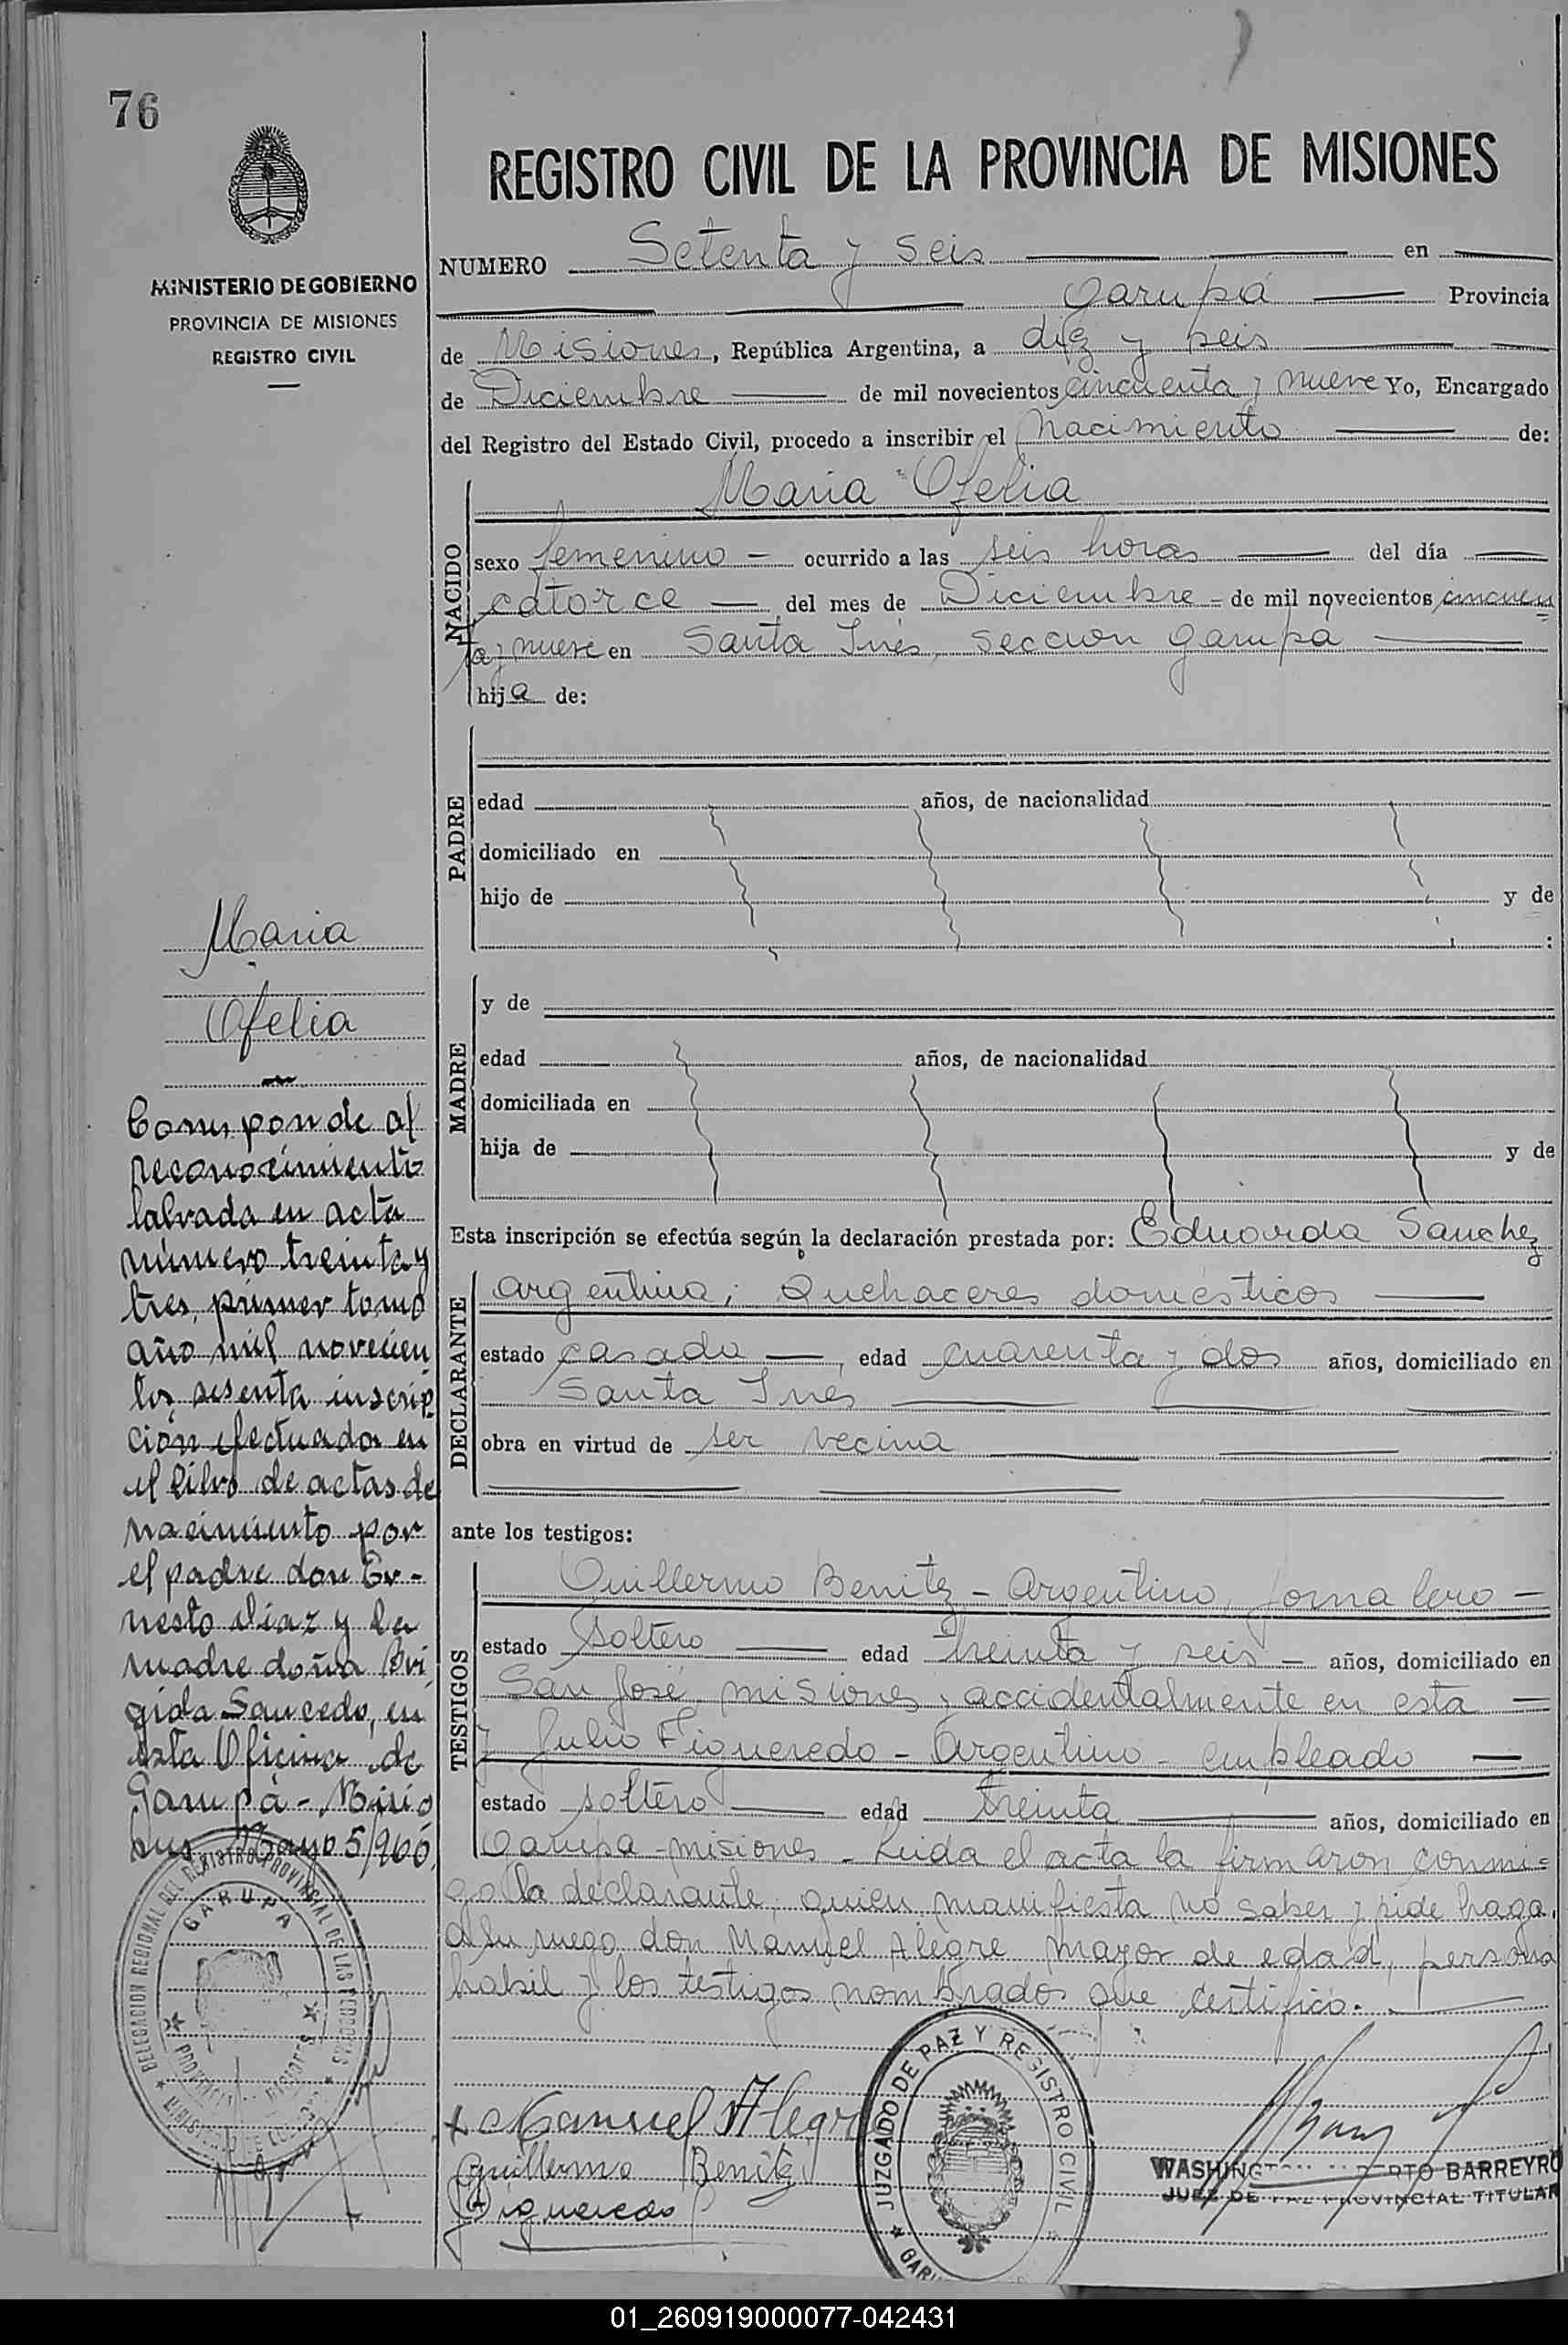 76
MINISTERIO DE GOBIERNO
PROVINCIA DE MISIONES
REGISTRO CIVIL
REGISTRO CIVIL DE LA PROVINCIA DE MISIONES
NUMERO Setenta y seis en
Garupá Provincia
de Misiones, República Argentina, a diez y seis
de Diciembre de mil novecientos cincuenta y nueve Yo, Encargado
del Registro del Estado Civil, procedo a inscribir el nacimiento de:
NACIDO
Maria Ofelia
sexo femenino - ocurrido a las seis horas del día
catorce del mes de Diciembre - de mil novecientos cincuen
ta y nueve en Santa Inés, sección Garupá
hija de:
PADRE
edad años, de nacionalidad
domiciliado en
hijo de y de
:
MADRE
y de
edad años, de nacionalidad
domiciliada en
hija de y de
Esta inscripción se efectúa según la declaración prestada por: Eduarda Sanchez
DECLARANTE
argentina; Quehaceres domésticos
estado casada, edad cuarenta y dos años, domiciliado en
Santa Inés
obra en virtud de ser vecina
ante los testigos:
TESTIGOS
Guillermo Benitez - Argentino, jornalero -
estado soltero edad treinta y seis - años, domiciliado en
San José, misiones, accidentalmente en esta -
y Julio Figueredo - Argentino - empleado
estado soltero edad treinta años, domiciliado en
Garupá - misiones - Leida el acta la firmaron conmi=
go la declarante, quien manifiesta no saber y pide haga
a su ruego don Manuel Alegre mayor de edad, persona
habil y los testigos nombrados que certifico.
Maria
Ofelia
Corresponde al
reconocimiento
labrada en acta
número treinta y
tres, primer tomo
año mil novecien
tos sesenta inscrip
ción efectuada en
el libro de actas de
nacimiento por
el padre don Er-
nesto Diaz y la
madre doña Bri
gida Saucedo, en
esta Oficina de
Garupá - Misio
nes Mayo 5/960
DELEGACION REGIONAL DEL REGISTRO PROVINCIAL DE LAS PERSONAS
GARUPA
PROVINCIA DE MISIONES
Manuel Alegre
Guillermo Benitez
Figueredo
JUZGADO DE PAZ Y REGISTRO CIVIL
WASHINGTON BARREYRO
JUEZ DE PAZ PROVINCIAL TITULAR
01_260919000077-042431